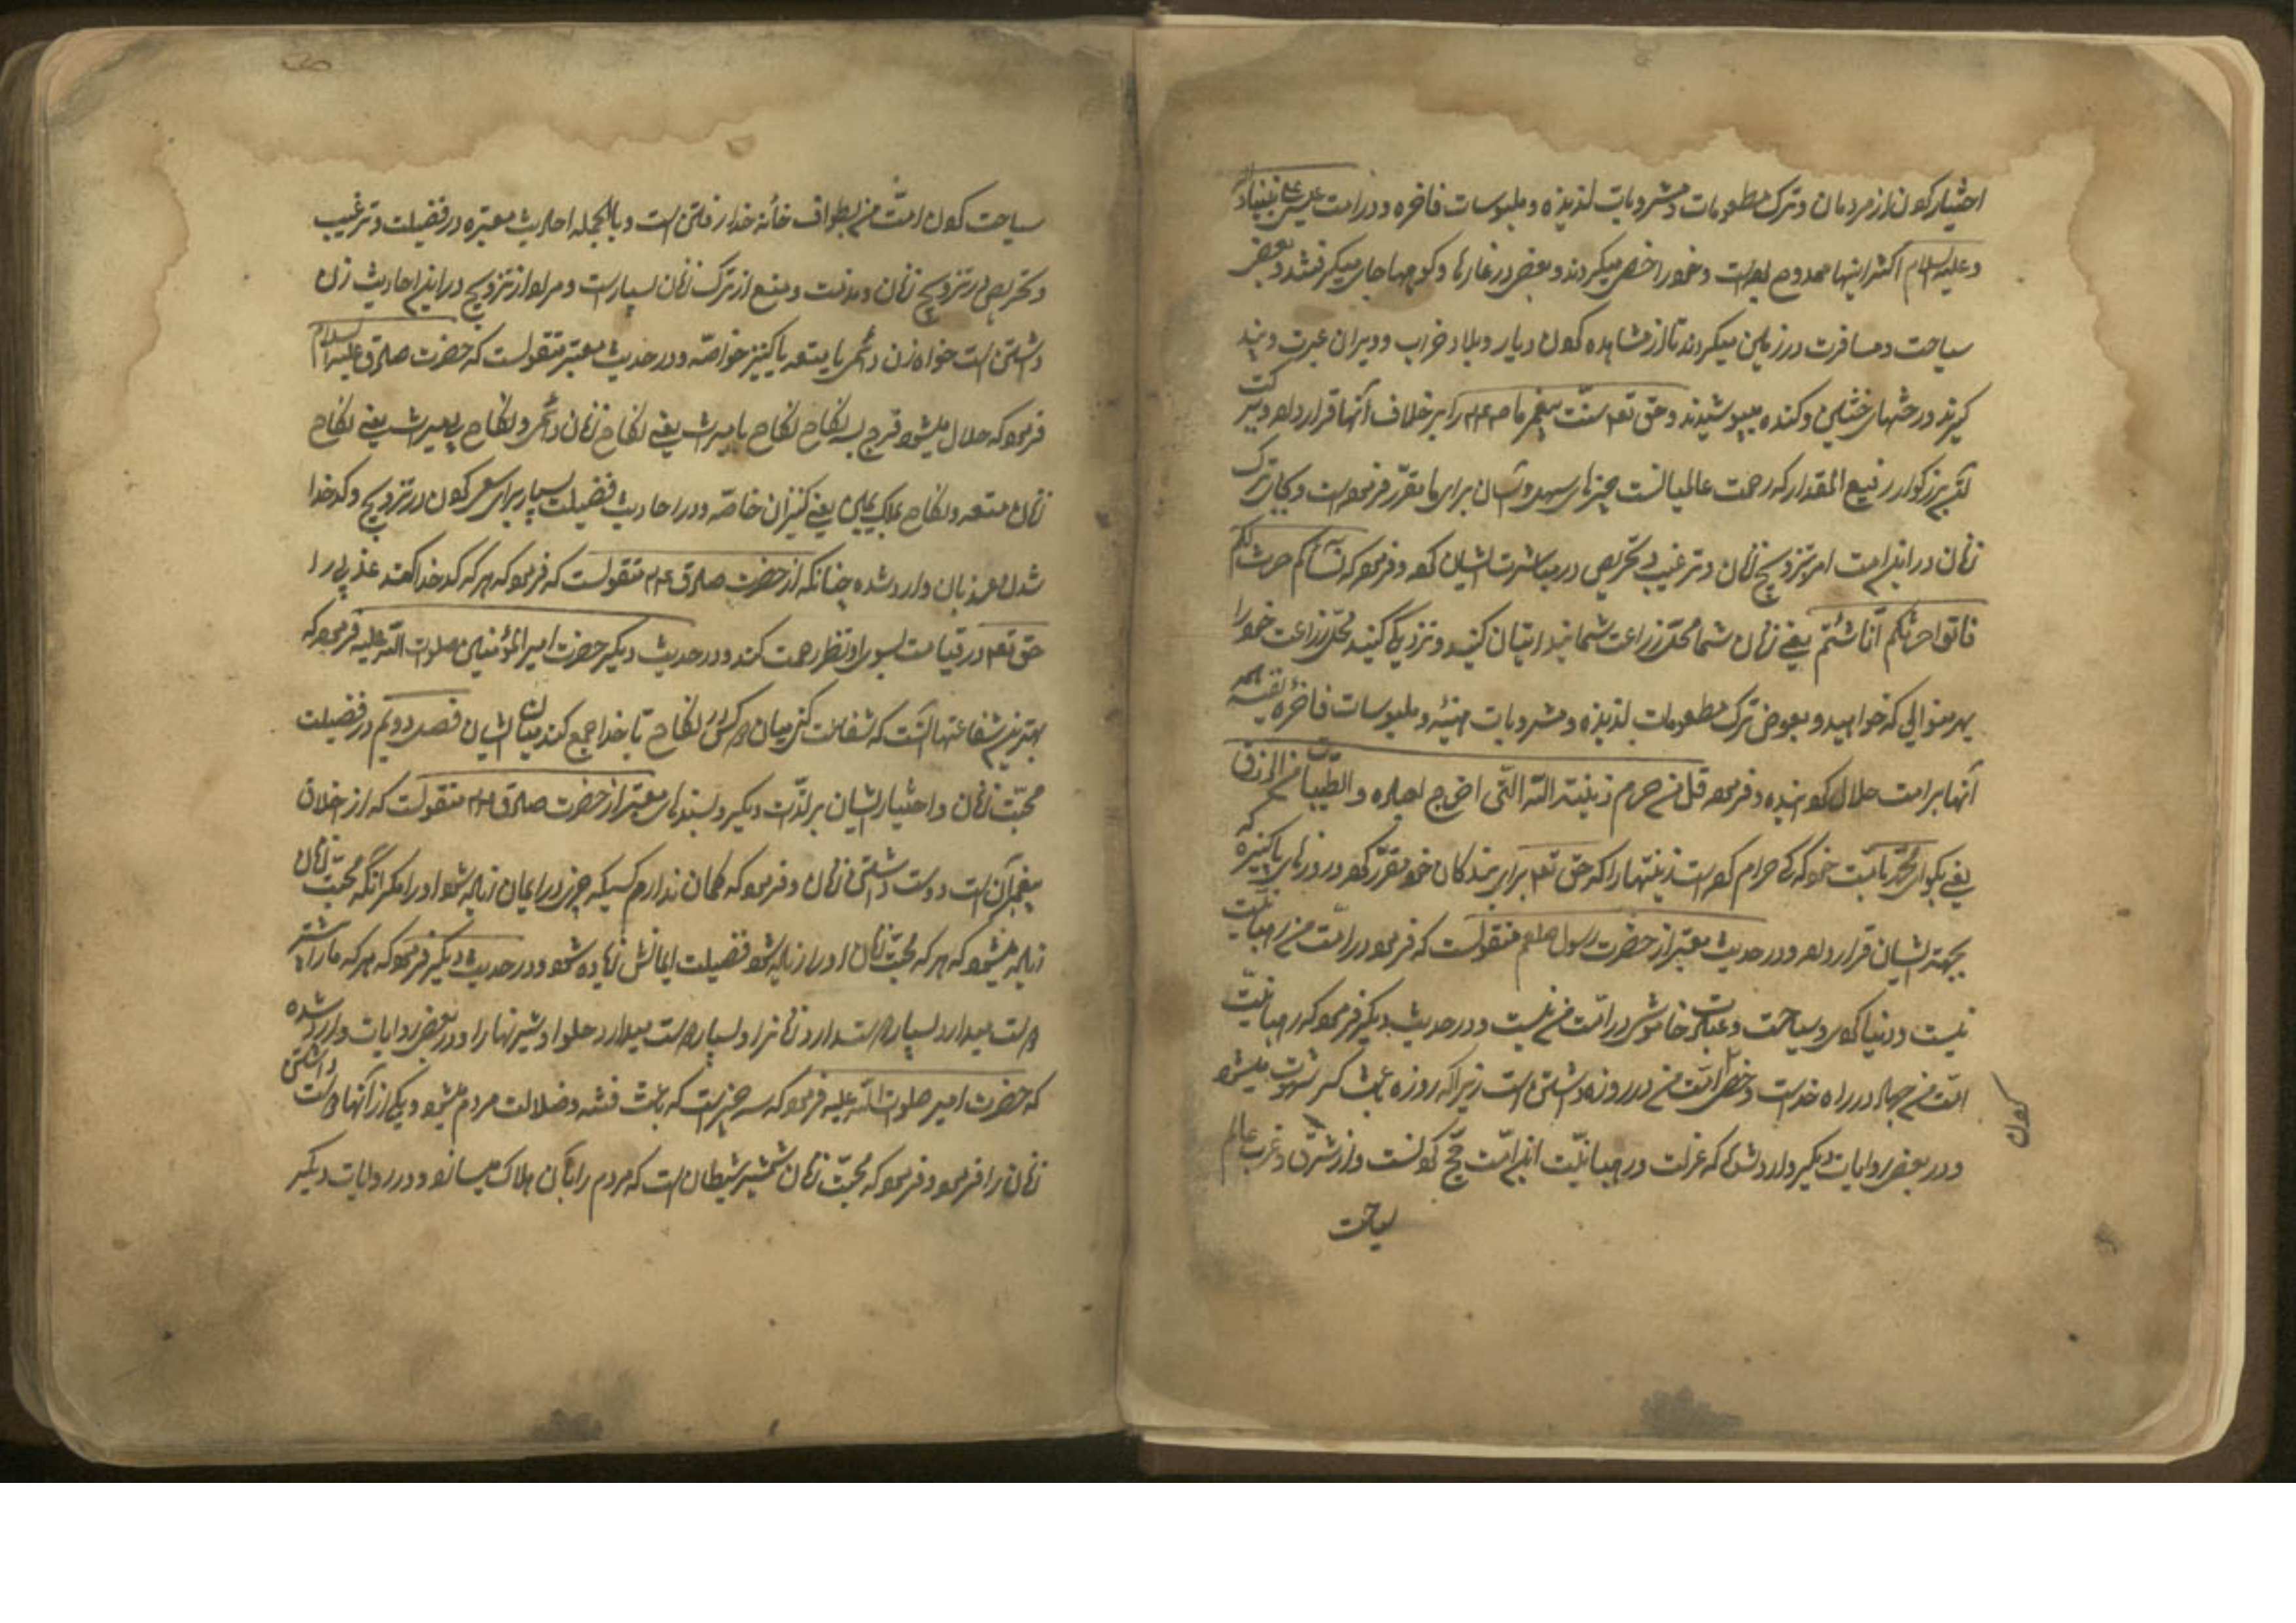 اختیار کردن از مردمان و ترک مطعومات و مشروبات لذیذه و ملبوسات فاخره و در امت عیسی علی نبینا و آله
و علیه السلام اکثر اینها ممدوح بوده است و خود را خصی میکردند و بعضی در غارها و کوهها جای میگرفتند و بعضی
سیاحت و مسافرت در زمین میکردند تا از مشاهده کردن دیار و بلاد خراب و ویران عبرت و پند
گیرند و رختهای خشن و کنده میپوشیدند و حق تعم سنت پیغمبر ما صلعم را بر خلاف آنها قرار داده و ببرکت
این بزرگوار رفیع المقدار که رحمت عالمیانست چیزهای سهل و آسان برای ما مقرر فرموده است و بجای ترک
زنان در این امت امر بتزویج زنان و ترغیب و تحریص در مباشرت ایشان کرده و فرموده که نسائکم حرث لکم
فاتوا حرثکم انا شئتم یعنی زنان شما محل زراعت شمایند اتیان کنید و نزدیکی کنید محل زراعت خود را
بهر منوالی که خواهید و بعوض ترک مطعومات لذیذه و مشروبات مهنیه و ملبوسات فاخره نفیسه همه
آنها بر امت حلال گردانیده و فرموده قل من حرم زینة الله التی اخرج لعباده و الطیبات من الرزق
یعنی بگو ای محمد بامت خود که کی حرام کرده است زینتها را که حق تعم برای بندگان خود مقرر کرده و روزیهای پاکیزه که
بجهة ایشان قرار داده و در حدیث معتبر از حضرت رسول صلعم منقولست که فرمود در امت من رهبانیت
نیست و دنیا گردی و سیاحت و عبادت خاموشی در امت من نیست و در حدیث دیگر فرمود که رهبانیت
امت من جهاد در راه خداست و خصی امت من در روزه داشتن است زیرا که روزه باعث کسر شهوت میشود
و در بعضی روایات دیگر وارد شده که عزلت و رهبانیت این امت حج کردنست و از شرق و غرب عالم
کردن
سیاحت
سیاحت کردن امت من بطواف خانه خدا رفتن است و بالجمله احادیث معتبره در فضیلت و ترغیب
و تحریص در تزویج زنان و مذمت و منع از ترک زنان بسیارست و مراد از تزویج در این احادیث زن
داشتن است خواه زن دائمی یا متعه یا کنیز خواصه و در حدیث معتبر منقولست که حضرت صادق علیه السلام
فرمود که حلال میشود فرج بسه نکاح نکاح با میراث یعنی نکاح زنان دائمی و نکاح بی میراث یعنی نکاح
زنان متعه و نکاح ملک یمین یعنی کنیزان خاصه و در احادیث فضیلت بسیار برای سعی کردن در تزویج و کدخدا
شدن عزبان وارد شده چنانکه از حضرت صادق ع م منقولست که فرمود که هر که کدخدا کند عزبی را
حق تعم در قیامت بسوی او نظر رحمت کند و در حدیث دیگر حضرت امیر المؤمنین صلوات الله علیه فرمود که
بهترین شفاعتها آنست که شفاعت کنی میان دو کس در نکاح تا خدا جمع کند میان ایشان فصل دویم در فضیلت
محبت زنان و اختیار ایشان بر لذت دیگر و بسندهای معتبر از حضرت صادق ع م منقولست که از اخلاق
پیغمبرآن است دوست داشتن زنان و فرمود که گمان ندارم کسیکه چیزی در ایمان زیاده شود او را مگر آنگه محبت زنان
زیاده میشود که هر که محبت زنان او را زیاده شود فضیلت ایمانش زیاده شود و در حدیث دیگر فرمود که هر که ما را بیشتر
دوست میدارد بسیار دوست دارد زنانرا و بسیار دوست میدارد حلوا و شیرنیها را و در بعضی روایات وارد شده
که حضرت امیر صلوات الله علیه فرمود که سه چیز است که باعث فتنه و ضلالت مردم میشود و یکی از آنها دوست داشتن
زنان را فرمود و فرمود که محبت زنان شمشیر شیطان است که مردم را بآن هلاک میسازد و در روایات دیگر